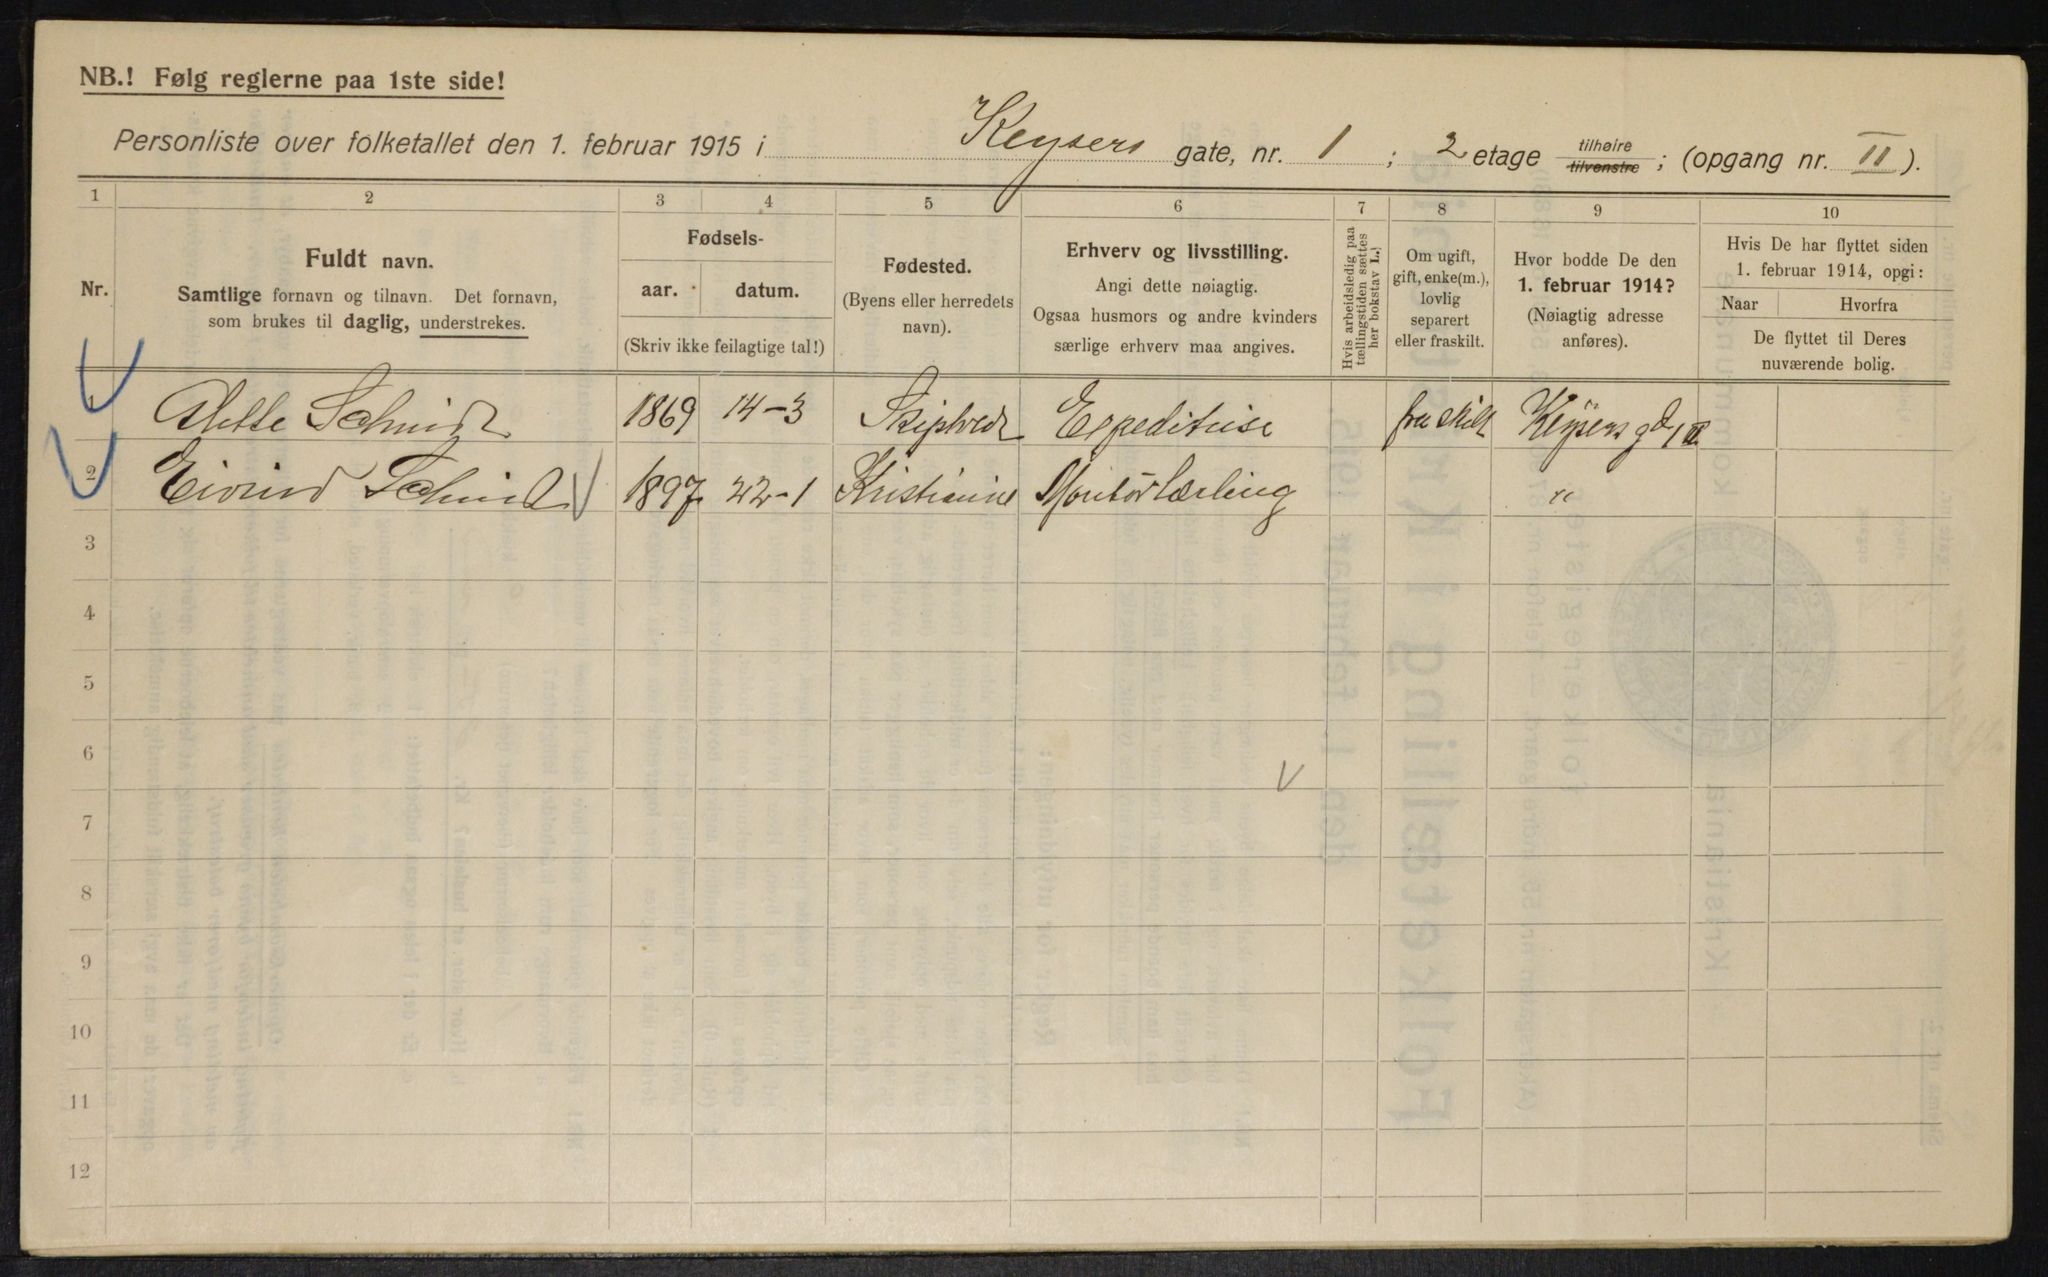 NB.! Følg reglerne paa 1ste side!
Personliste over folketallet den 1. februar 1915 i Keysers gate, nr. 1 ; 2 etage tilhøire tilvenstre ; (opgang nr. II ).
1 2 3 4 5 6 7 8 9 10
Nr.
Fuldt navn.
Samtlige fornavn og tilnavn. Det fornavn,
som brukes til daglig, understrekes.
Fødsels-
aar. datum.
(Skriv ikke feilagtige tal!)
Fødested.
(Byens eller herredets
navn).
Erhverv og livsstilling.
Angi dette nøiagtig.
Ogsaa husmors og andre kvinders
særlige erhverv maa angives.
Hvis arbeidsledig paa
tællingstiden sættes
her bokstav L.
Om ugift,
gift, enke(m.),
lovlig
separert
eller fraskilt.
Hvor bodde De den
1. februar 1914?
(Nøiagtig adresse
anføres).
Hvis De har flyttet siden
1. februar 1914, opgi:
Naar Hvorfra
De flyttet til Deres
nuværende bolig.
1 Alette Schmidt 1869 14-3 Skiptvedt Expeditrise fraskilt Keysers gd 1 II
2 Eivind Schmidt 1897 22-1 Kristiania Montörlærling "
3
4
5
6
7
8
9
10
11
12